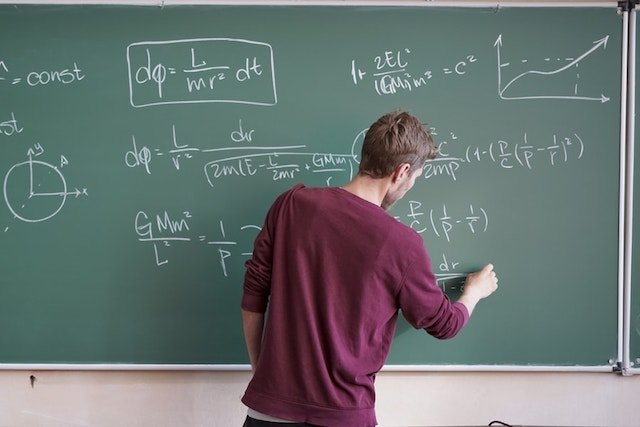 = const
dφ = L/mr² dt
1+ 2EL²/(GMm)²m³ = c²
st
y
x
dφ = L/r² dr/√(2m(E - L²/2mr² + GMm/r
c²/2mp (1-(P/c(1/p - 1/r)²)
GMm²/L² = 1/P
= P/c (1/p - 1/r)
dr